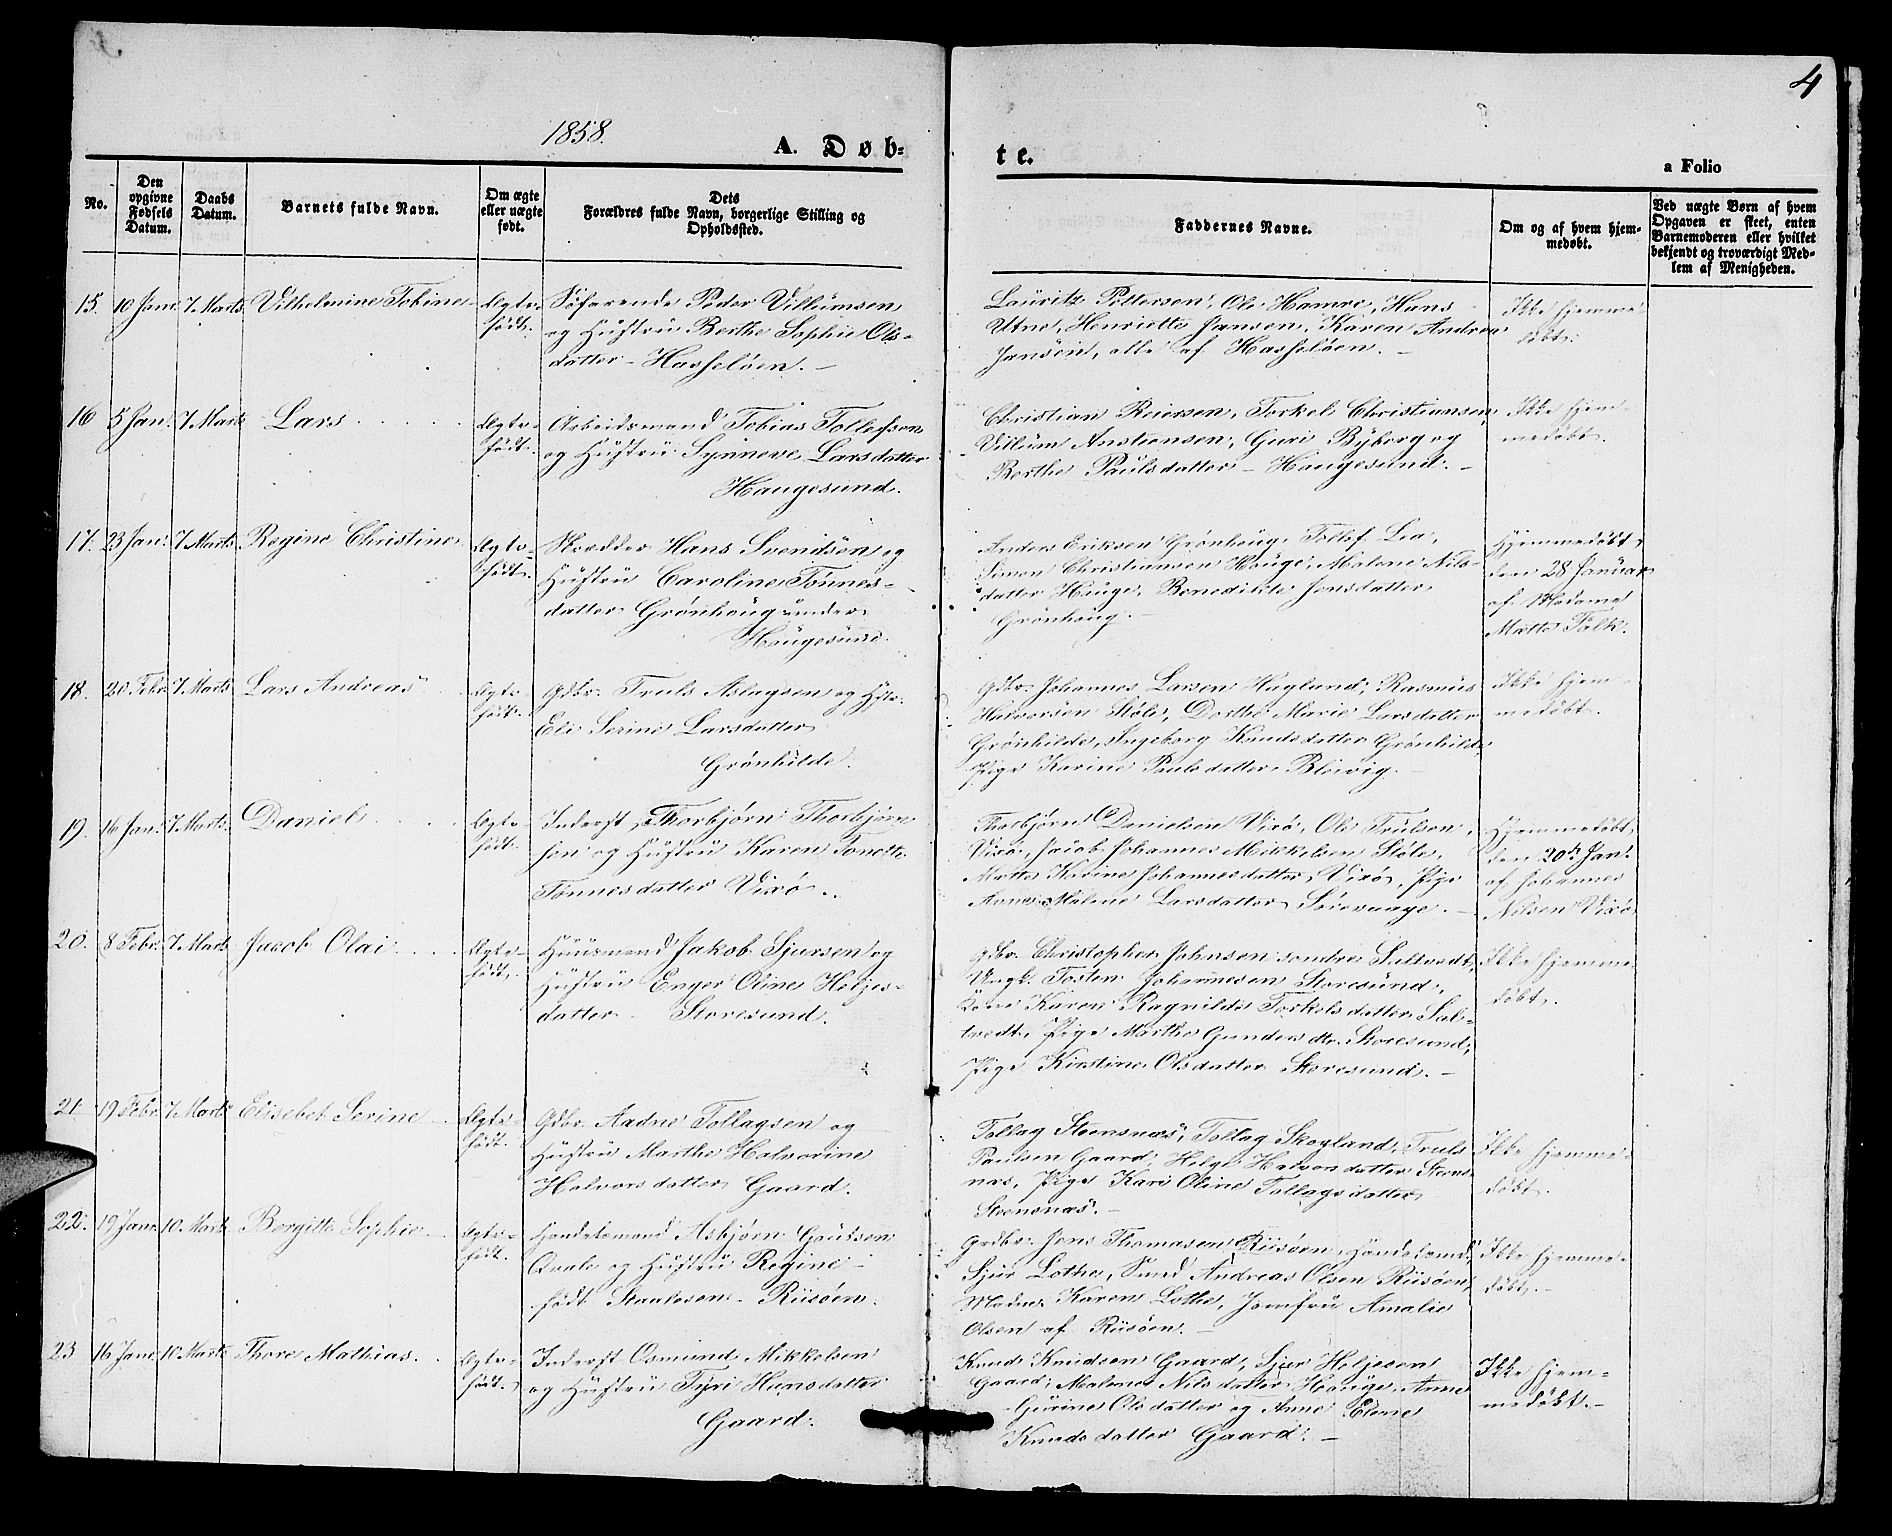 4
1858.
A. Døb-
te.
a Folio
No.
Den opgivne Fødsels Datum.
Daabs Datum.
Barnets fulde Navn.
Om ægte eller uægte født.
Dets
Forældres fulde Navn, borgerlige Stilling og
Opholdssted.
Faddernes Navne.
Om og af hvem hjem-
medøbt.
Ved uægte Børn af hvem
Opgaven er skeet, enten
Barnemoderen eller hvilket
bekjendt og troværdigt Med-
lem af Menigheden.
15. 10 Jan. 7 Marts Vilhelmine Tobine Ægte-
født.
Søfarende Peder Villumsen
og Hustru Berthe Sophie Ols-
datter - Hasseløen. -
Lauritz Pettersen, Ole Hamre, Hans
Utne, Henriette Jansen, Karen Andrea
Jansen, alle af Hasseløen. -
Ikke hjemme-
døbt.
16 5 Jan. 7 Marts Lars Ægte-
født.
Arbeidsmand Tobias Tollefsen
og Hustru Synneve Larsdatter
Haugesund.
Christian Reiersen, Torkel Christiansen,
Villum Anstensen, Guri Byborg og
Berthe Paulsdatter - Haugesund. -
Ikke hjem-
medøbt.
17. 23 Jan. 7 Marts Regine Christine Ægte-
født.
Skrædder Hans Svendsen og
Hustru Caroline Tønnes-
datter Grønhaug under
Haugesund.
Anders Eriksen Grønhaug, Tollef Lea,
Simon Christiansen Hauge, Malene Nils-
datter Hauge, Benedikte Jensdatter
Grønhaug. -
Hjemmedøbt
den 28 Januar
af Madame
Mette Falk.
18. 20 Febr. 7 Marts Lars Andreas Ægte-
født.
Gdbr. Truls Aslagsen og Hstr.
Eli Serine Larsdatter
Grønhilde.
Gdbr. Johannes Larsen Hagland, Rasmus
Halvorsen Støle, Dorthe Marie Larsdatter
Grønhilde, Ingeborg Knudsdatter Grønhilde,
Pige Karine Paulsdatter Bleivig. -
Ikke hjem-
medøbt.
19. 16 Jan. 7 Marts. Daniel Ægte-
født.
Inderst Thorbjørn Thorbjørn-
sen og Hustru Karen Tonette
Tønnesdatter Vixø.
Thorbjørn Danielsen Vixø, Ole Trulsen
Vixø, Jacob Johannes Mikkelsen Støle,
Mette Karine Johannesdatter Vixø, Pige
Anne Malene Larsdatter Sørevaage. -
Hjemmedøbt
den 20de Jan.
af Johannes
Nilsen Vixø
20. 8 Febr. 7 Marts Jacob Olai Ægte-
født.
Huusmand Jakob Sjursen og
Hustru Enger Oline Heljes-
datter - Storesund.
Gdbr. Christopher Johnsen søndre Saltvedt,
Ungk. Tosten Johannesen Storesund,
Kone Karen Ragnilde Torkelsdatter Salt-
tvedt, Pige Marthe Gunders dtr. Storesund,
Pige Kirstine Olsdatter Storesund. -
Ikke hjemme-
døbt.
21. 19 Febr. 7 Marts Elisebet Serine Ægte-
født.
Gdbr. Aadne Tollagsen og
Hustru Marthe Halvorine
Halvorsdatter Gaard.
Tollag Steensnæs, Tollag Skogland, Truls
Paulsen Gaard, Helge Halvorsdatter Steens-
næs, Pige Kari Oline Tollagsdatter
Steensnæs. -
Ikke hjemme-
døbt.
22. 19 Janr. 10. Marts Bergitte Sophie Ægte-
født.
Handelsmand Asbjørn Gautsen
Qvale og Hustru Regine
født Staalesen - Riisøen.
Grdbr. Jens Thomasen Riisøen, Handelsmd.
Sjur Lothe, Smed Andreas Olsen Riisøen,
Madme Karen Lothe, Jomfru Amalie
Olsen af Riisøen. -
Ikke hjemme-
døbt. -
23 16 Janr. 10 Marts Thore Mathias Ægte-
født.
Inderst Osmund Mikkelsen
og Hustru Tyri Hansdatter
Gaard.
Knud Knudsen Gaard, Sjur Heljesen
Gaard, Malene Nilsdatter Hauge, Anne
Gurine Olsdatter og Anne Elene
Knudsdatter Gaard. -
Ikke hjem-
medøbt. -